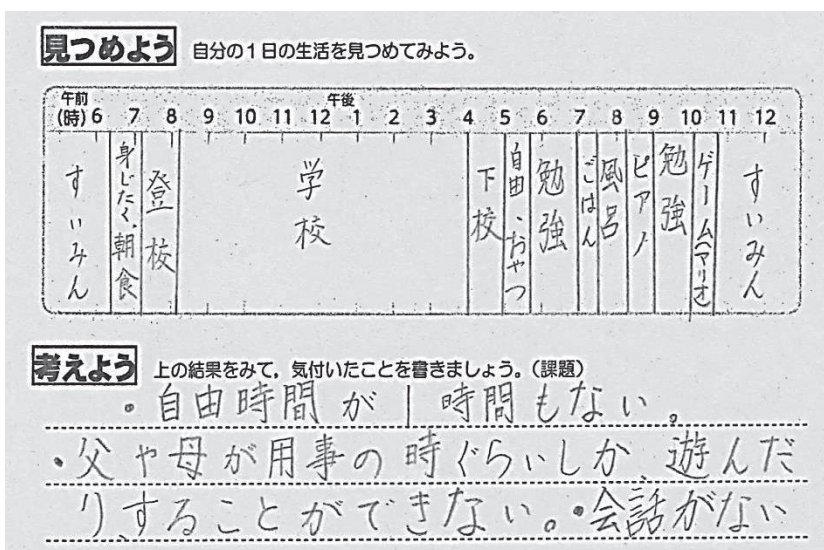 見つめよう 自分の1日の生活を見つめてみよう。
午前 午後
(時) 6 7 8 9 10 11 12 1 2 3 4 5 6 7 8 9 10 11 12
すいみん
身じたく、朝食
登校
学校
下校
自由、おやつ
勉強
ごはん
風呂
ピアノ
勉強
ゲーム(マリオ)
すいみん
考えよう 上の結果をみて,気付いたことを書きましょう。(課題)
・自由時間が1時間もない。
・父や母が用事の時ぐらいしか、遊んだ
り、することができない。・会話がない